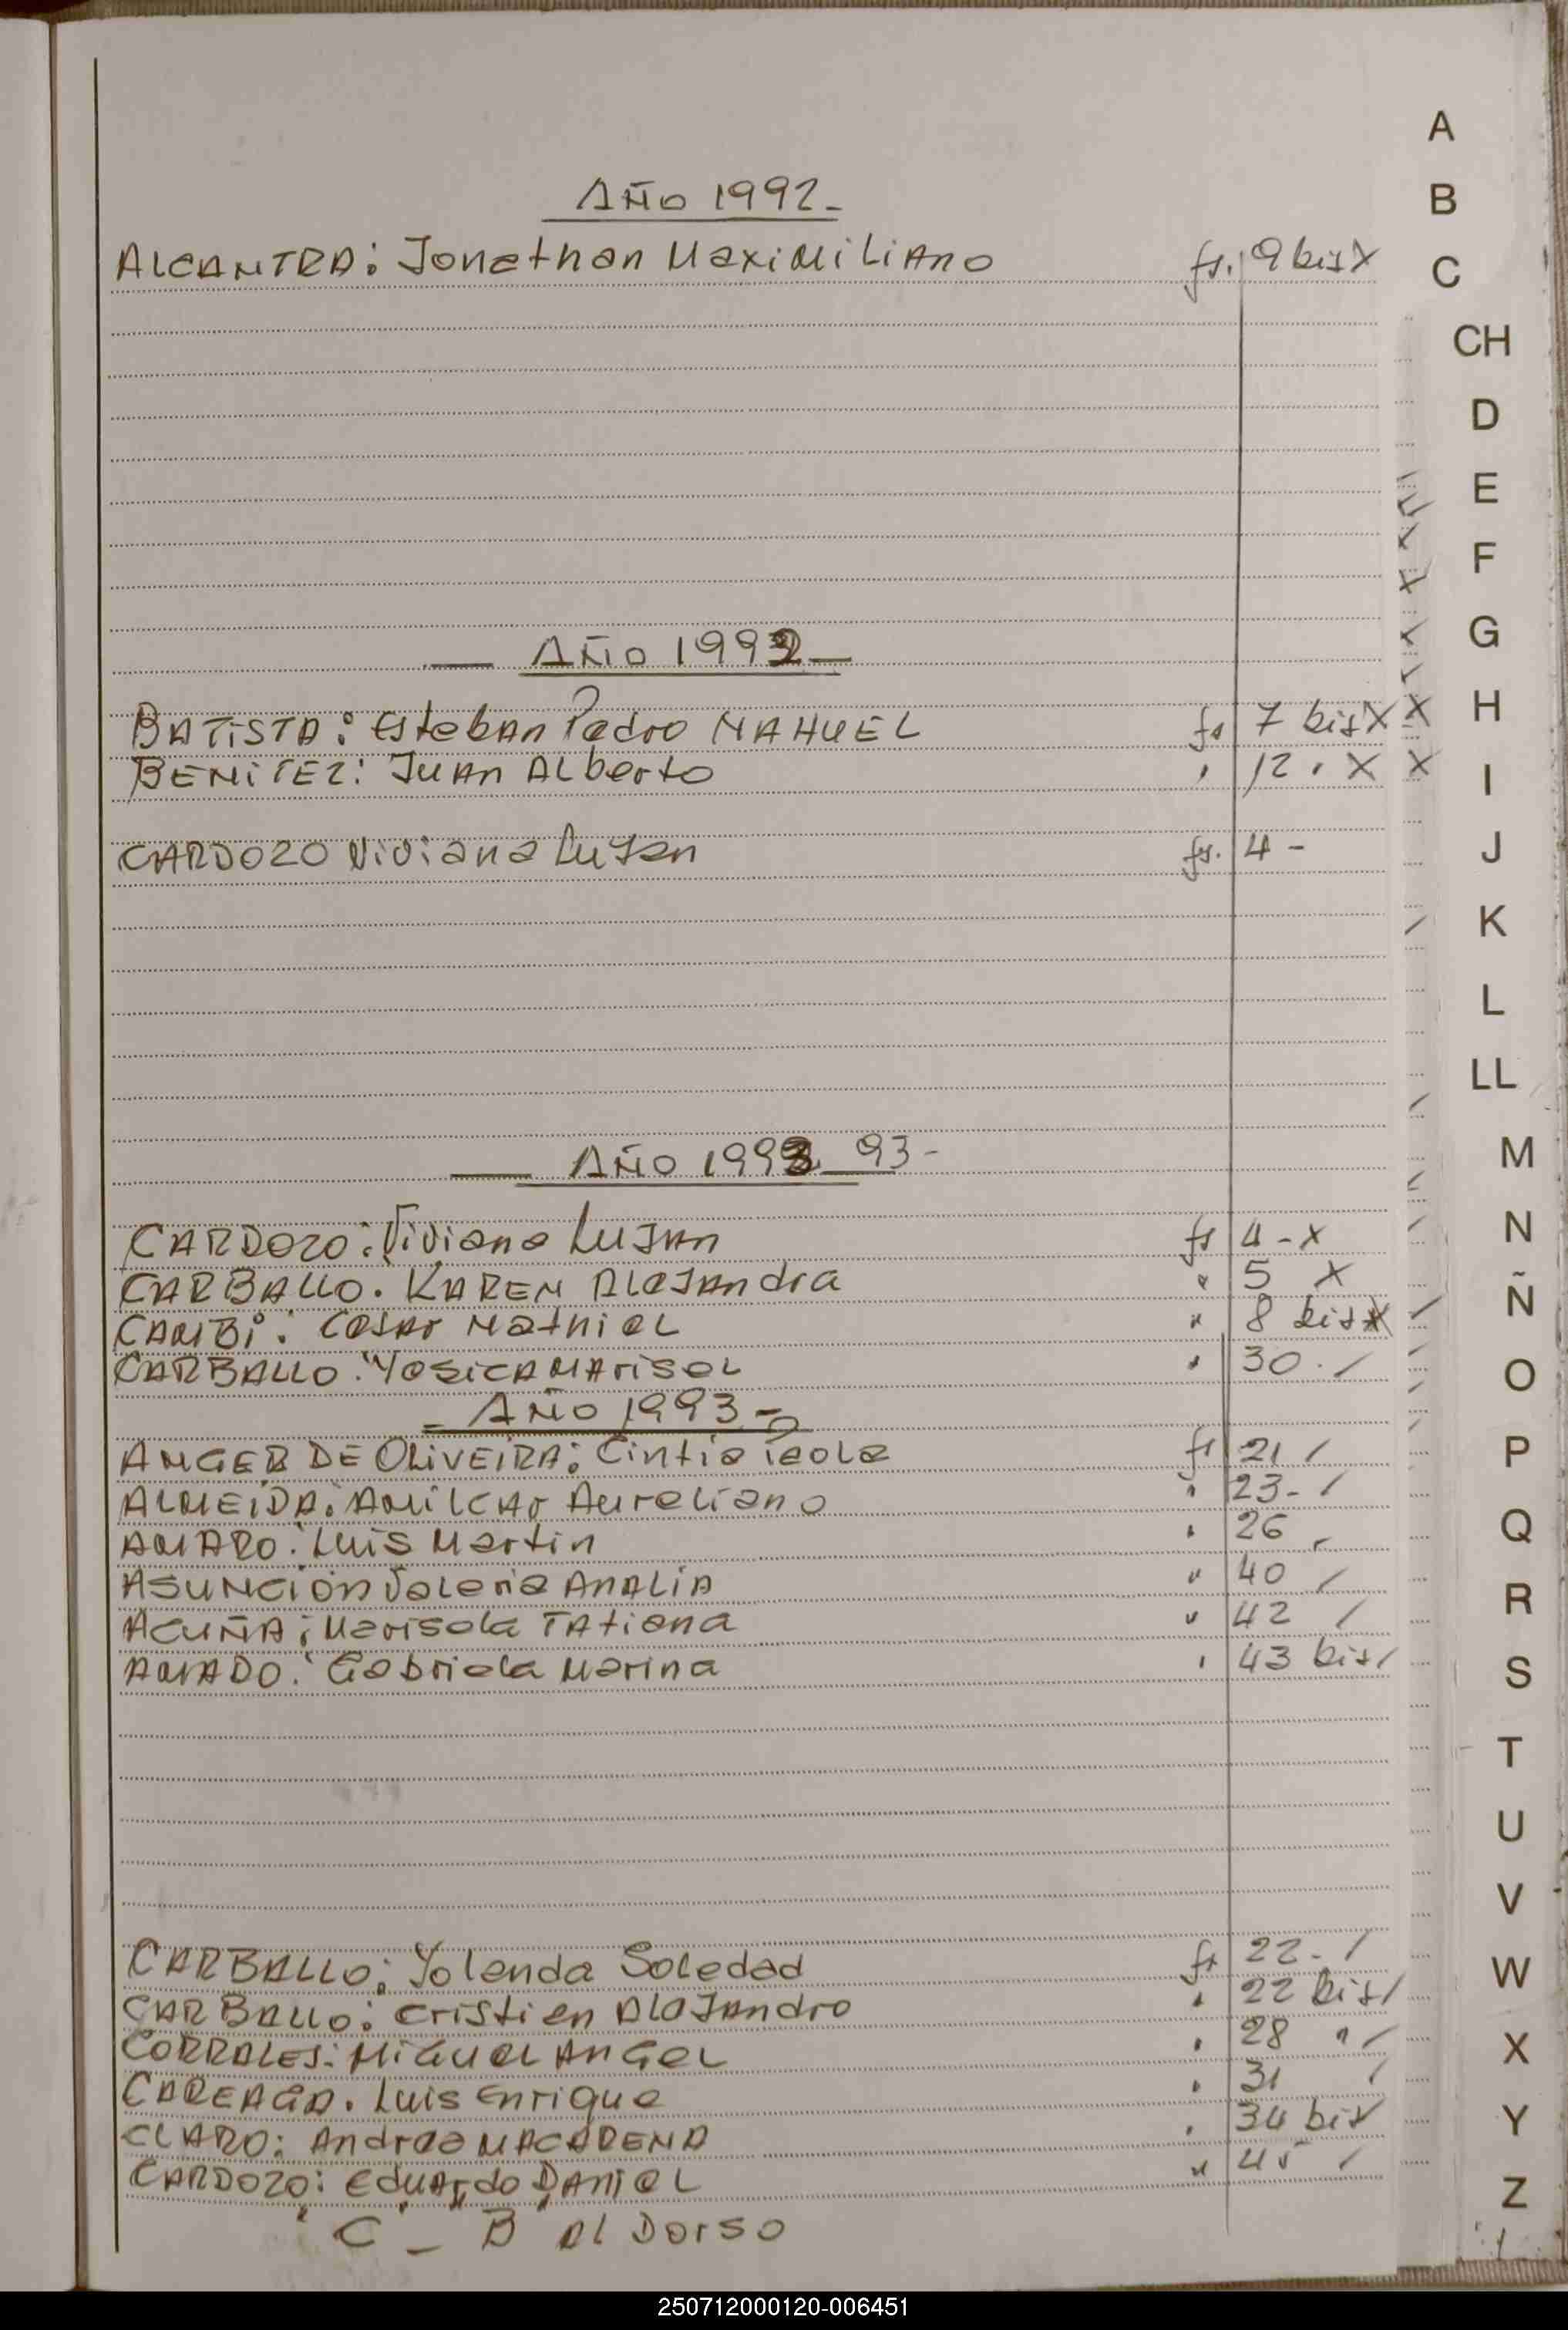 Año 1992-
ALCANTRA: Jonathan MaxiMiLiAno fs. 9 bis X
Año 1992-
BATiSTA: Esteban Pedro NAHUEL fs 7 bis X X
BENiTEZ: Juan Alberto " 12 . X X
CARDOZO Viviana LuJan fs. 4 -
Año 1993 93-
CARDOZO: Viviana LuJan fs 4 - X
CARBALLO. KAREN AleJandra " 5 X
CAMBi: CesAr Mathiel " 8 bis X
CARBALLO. YesicA MArisol " 30 . /
Año 1993-
ANGER DE OLiVEiRA: Cintia Paola fs 21 /
ALMEiDA: AMiLCAr Aureliano " 23 - /
AMARO: Luis Martin " 26
ASUNCiON Valeria AnALiA " 40 /
ACUÑA: Marisola TAtiana " 42 /
AMADO: Gabriela Marina " 43 bis /
CARBALLO: Yolanda Soledad fs 22 - /
CARBALLO: Cristian AleJandro " 22 bis /
CORRALES: MiGuel AnGel " 28 " /
CAREAGA. Luis Enrique " 31 /
CLARO: Andrea MACARENA " 34 bis /
CARDOZO: EduArdo DAniel " 45 /
"C" _ "B" Al Dorso
A
B
C
CH
D
E
F
G
H
I
J
K
L
LL
M
N
Ñ
O
P
Q
R
S
T
U
V
W
X
Y
Z
250712000120-006451